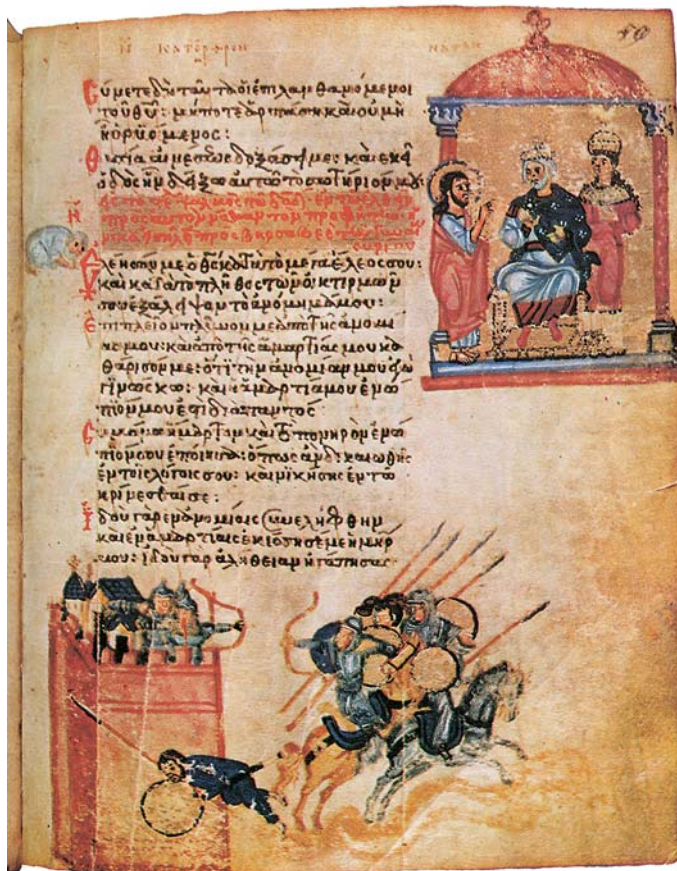 ΝΑΤΑΝ
50
Σύνετε δὴ ταῦτα οἱ ἐπιλανθανόμενοι
τοῦ θυ: μήποτε ἁρπάση καὶ οὐ μὴ
ἦ ὁ ῥυόμενος:
Θυσία αἰνέσεως δοξάσει με: καὶ ἐκεῖ
ὁδὸς ἣν δείξω αὐτῶ τὸ σωτήριόν μου
Ν
πρὸς αὐτὸν ναθαν τὸν προφήτην
ἡνίκα εἰσῆλθε πρὸς
Ἐλέησόν με ὁ θς κατὰ τὸ μέγα ἔλεός σου:
καὶ κατὰ τὸ πλῆθος τῶν οἰκτιρμῶν
σου ἐξάλειψον τὸ ἀνόμημά μου:
Ἐπιπλεῖον πλῦνόν με ἀπὸ τῆς ἀνομί
ας μου: καὶ ἀπὸ τῆς ἁμαρτίας μου κα
θάρισόν με: ὅτι τὴν ἀνομίαν μου ἐγὼ
γινώσκω: καὶ ἡ ἁμαρτία μου ἐνώ
πιόν μου ἐστὶ διαπαντός
Σοὶ μόνω ἥμαρτον καὶ τὸ πονηρὸν ἐνώ
πιόν σου ἐποίησα: ὅπως ἂν δικαιωθῆς
ἐν τοῖς λόγοις σου: καὶ νικήσης ἐν τῶ
κρίνεσθαί σε:
Ἰδοὺ γὰρ ἐν ἀνομίαις συνελήφθην
καὶ ἐν ἁμαρτίαις ἐκίσσησέ με ἡ μήτηρ
μου: ἰδοὺ γὰρ ἀλήθειαν ἠγάπησας